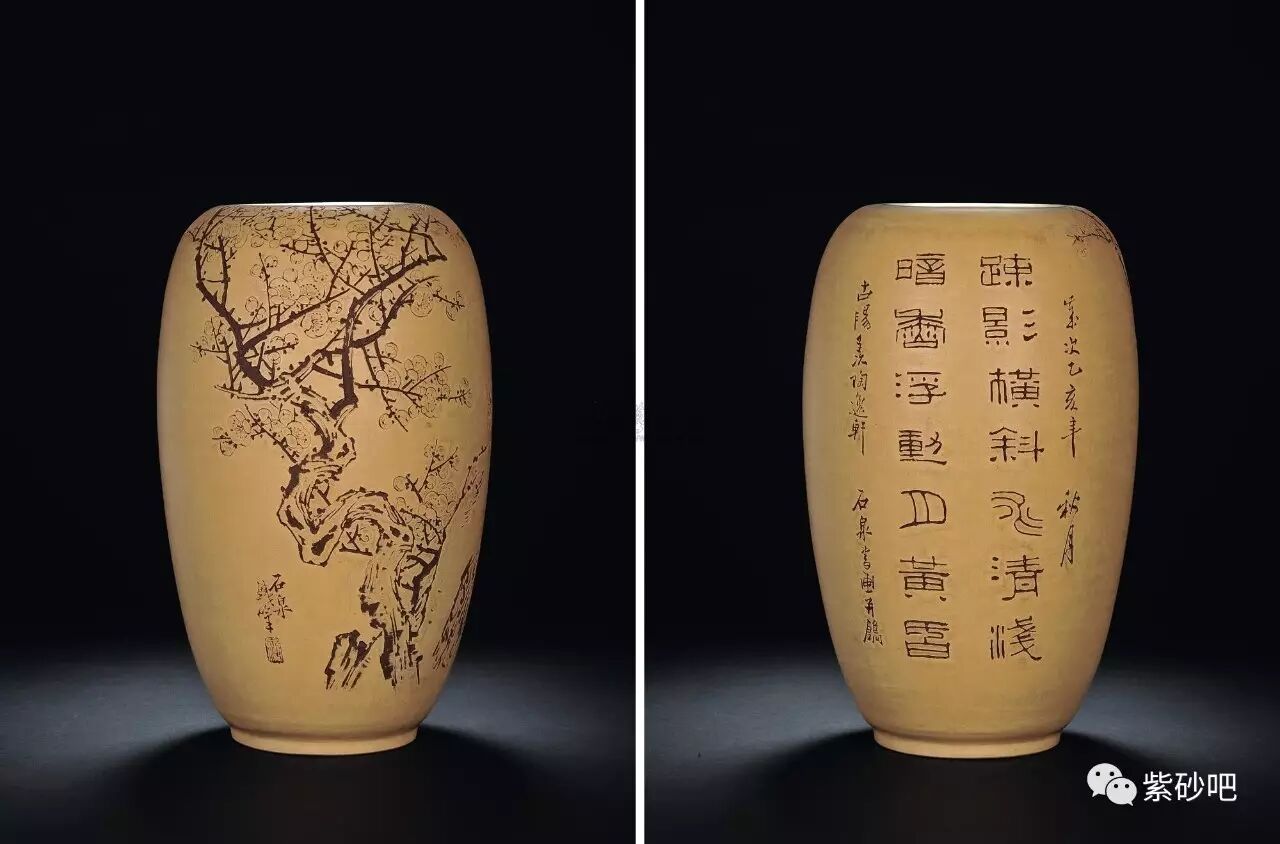 石泉
歲次乙亥年 秋月
踈影橫斜水清淺
暗香浮動月黃昏
古陽羨陶逸軒 石泉書畫并鐫
紫砂吧